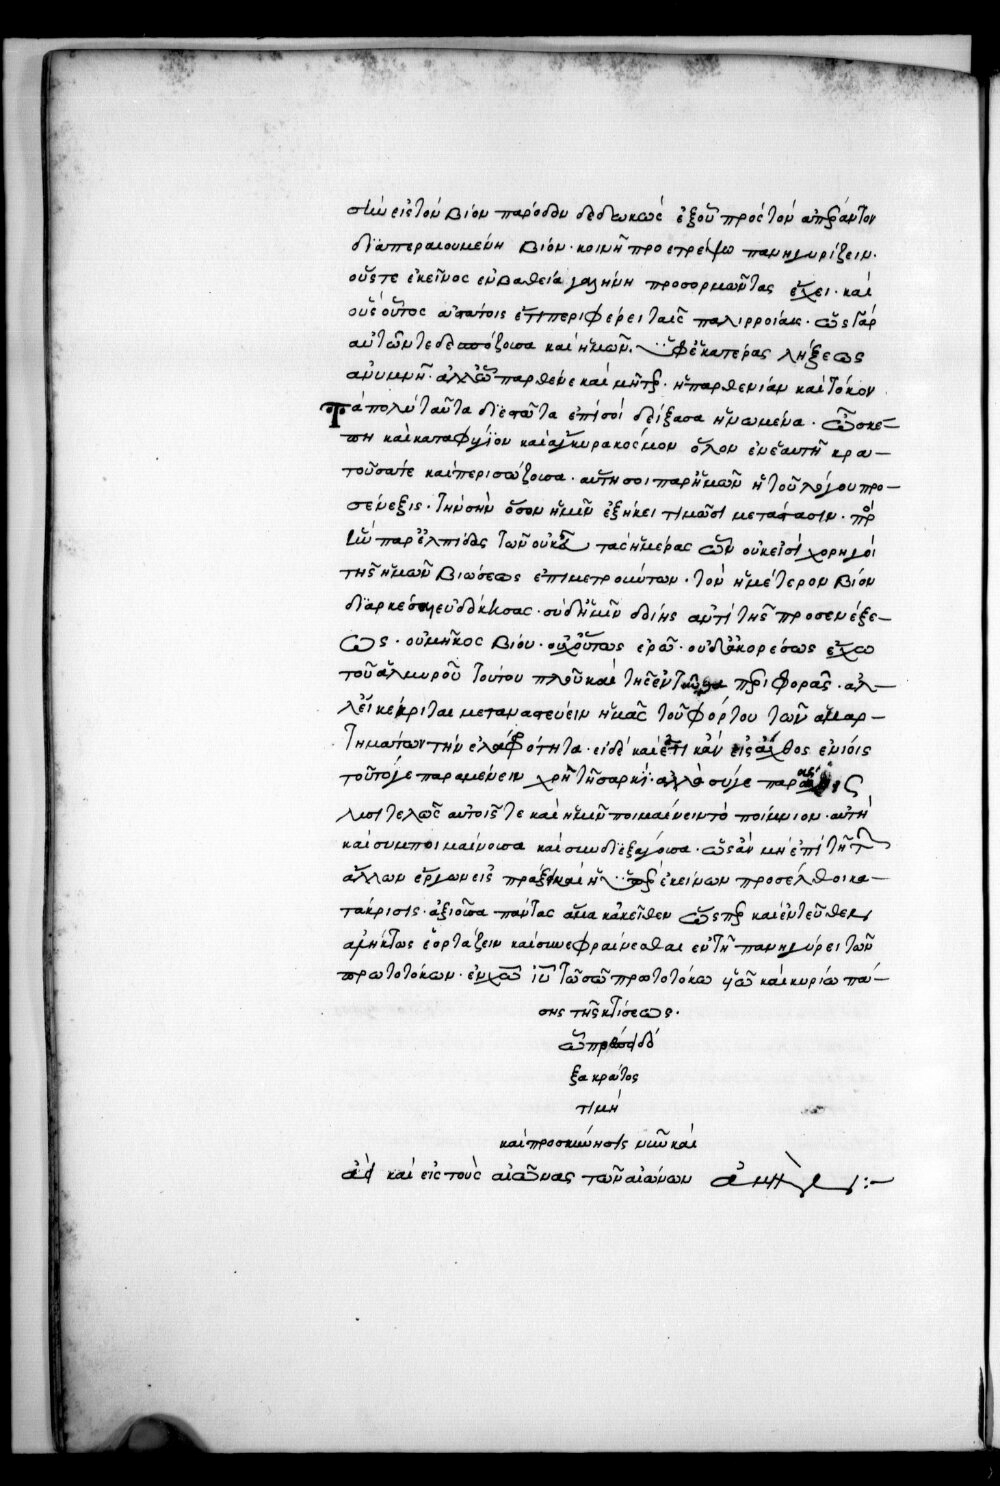 στιν εἰς τὸν βίον πάροδον δεδωκὼς ἐξ οὗ πρὸς τὸν ἀπέραντον
διαπεραιουμένη βίον· κοινῇ προετρέψω πανηγυρίζειν·
οὔτε ἐκεῖνος ἐν βαθεία γαλήνη προσορμῶντας ἔχει· καὶ
οὐχ οὗτος αὐτοῖς ἔτι περιφέρει ταῖς παλιρροίαις· ὡς γὰρ
αὐτῶν τε δεσπόζουσα καὶ ἡμῶν· ὑφ' ἑκατέρας λήξεως
ἀνυμνῇ· ἀλλ' ὦ παρθένε καὶ μῆτερ· ἡ παρθενίαν καὶ τόκον
τὰ πολὺ ταῦτα διεστῶτα ἐπὶ σοὶ δείξασα ἡνωμένα· ὦ σκέ–
πη καὶ καταφύγιον καὶ ἄγκυρα κόσμον ὅλον ἐν ἑαυτῇ κρα–
τοῦσά τε καὶ περισώζουσα· αὕτη σοι παρ' ἡμῶν ἡ τοῦ λόγου προ–
σένεξις· τὴν σὴν ὅσον ἡμῖν ἐξήκει τιμῶσι μετάστασιν·
παρ' ἐλπίδας τῶν οὐκ τὰς ἡμέρας ὧν οὐκ εἰσὶ χορηγοὶ
τῆς ἡμῶν βιώσεως ἐπιμετρούντων· τὸν ἡμέτερον βίον
διαρκέσαι εὐδόκησας· σὺ δ' ἡμῖν δοίης ἀντὶ τῆς προσενέξε–
ως· οὐ μῆκος βίου· οὐχ οὕτως ἐρῶ· οὐδ' ἀκορέσως ἔχω
τοῦ ἁλμυροῦ τούτου πλοῦ καὶ τῆς ἐν περιφορᾶς· ἀλ–
λ' εἰ κέκριται μεταναστεύειν ἡμᾶς τοῦ φόρτου τῶν ἁμαρ–
τημάτων τὴν ἐλαφρότητα· εἰ δὲ καὶ ἔτι κἂν εἰς ἄχθος ἐνίοις
τοῦτό γε παραμένειν χρὴ τῇ σαρκὶ· ἀλλὰ σύ γε
λυσιτελῶς αὐτοῖς τε καὶ ἡμῖν ποιμαίνειν τὸ ποίμνιον· αὐτὴ
καὶ συμποιμαίνουσα καὶ συνδιεξάγουσα· ὡς ἂν μὴ ἐπὶ τῇ τ
ἄλλων ἔργων εἰσπράξει καὶ ἡ ὑπὲρ ἐκείνων προσέλθοι κα–
τάκρισις· ἀξιοῦσα πάντας ἅμα κἀκεῖθεν ὥσπερ καὶ ἐντεῦθεν
ἀλήκτως ἑορτάζειν καὶ συνευφραίνεσθαι ἐν τῇ πανηγύρει τῶν
πρωτοτόκων· ἐν χῶ ἰυ τῶ σῶ πρωτοτόκω υἱῶ καὶ κυρίω πά–
σης τῆς κτίσεως·
ὧ πρέπει δό
ξα κράτος
τιμὴ
καὶ προσκύνησις νῦν καὶ
ἀεὶ καὶ εἰς τοὺς αἰῶνας τῶν αἰώνων ἀμήν :–